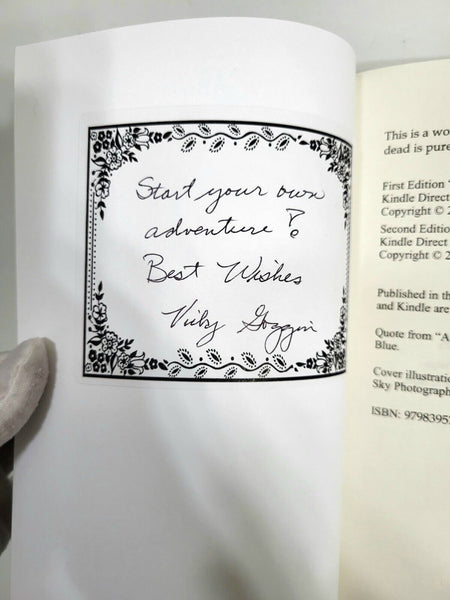 Start your own
adventure!
Best Wishes
Vicky Goggin
This is a wo
dead is pure
First Edition
Kindle Direct
Copyright © 2
Second Edition
Kindle Direct
Copyright © 2
Published in th
and Kindle are
Quote from "A
Blue.
Cover illustratio
Sky Photograph
ISBN: 9798395